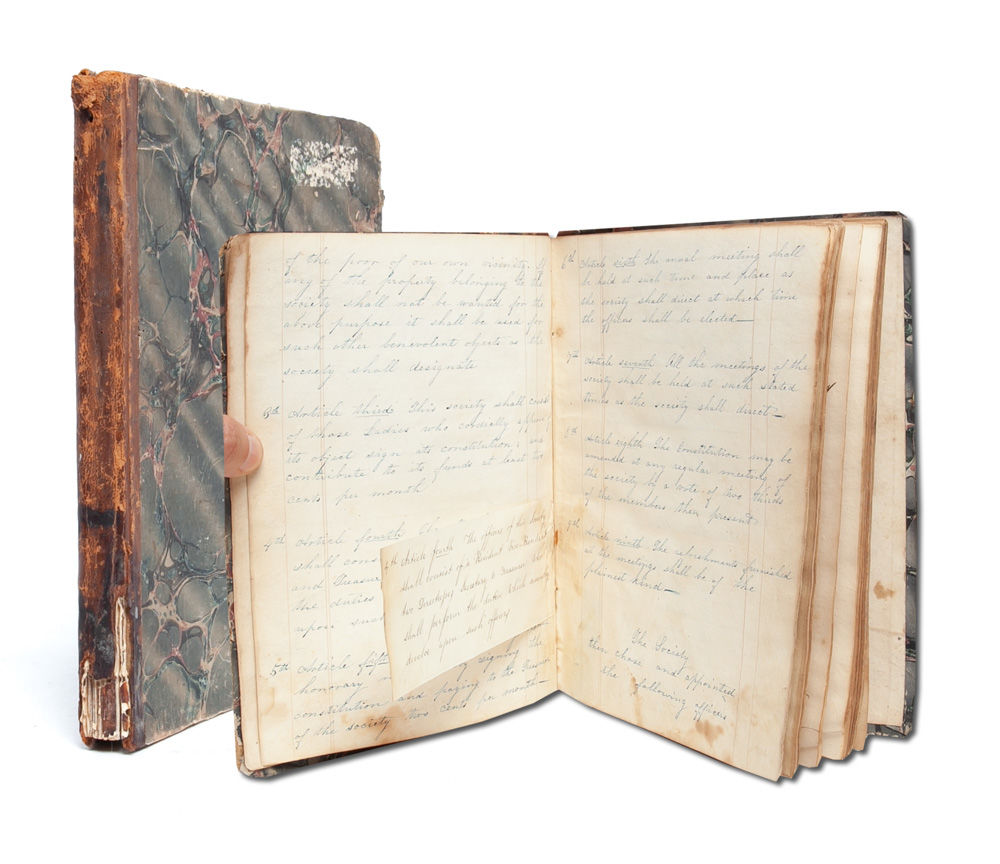 of the poor of our own vicinity. If
any of the property belonging to the
society shall not be wanted for the
above purpose it shall be used for
such other benevolent objects as the
society shall designate
3d Article third. This society shall
of those Ladies who cordially
its object sign its constitution, and
contribute to its funds at least two
cents per month
4th Article fourth The
shall cons
and Treasure
the duties
upon such
4th Article fourth The officers of this Society
shall consist of a President Vice President
two Secretary & Treasurer that
shall perform the duties which usually
devolve upon such officers
5th Article fifth signing the
honorary
constitution and paying to the Treasurer
of the society two cents per month—
6th Article sixth the meeting shall
be held at such time and place as
the society shall direct at which time
the officers shall be elected—
7th Article seventh All the meetings of the
society shall be held at such stated
times as the society shall direct—
8th Article eighth The Constitution may be
amended at any regular meeting of
the society by a vote of two thirds
of the members then present
9th Article ninth The refreshments furnished
at the meetings shall be of the
plainest kind—
The Society
then chose and appointed
the following officers